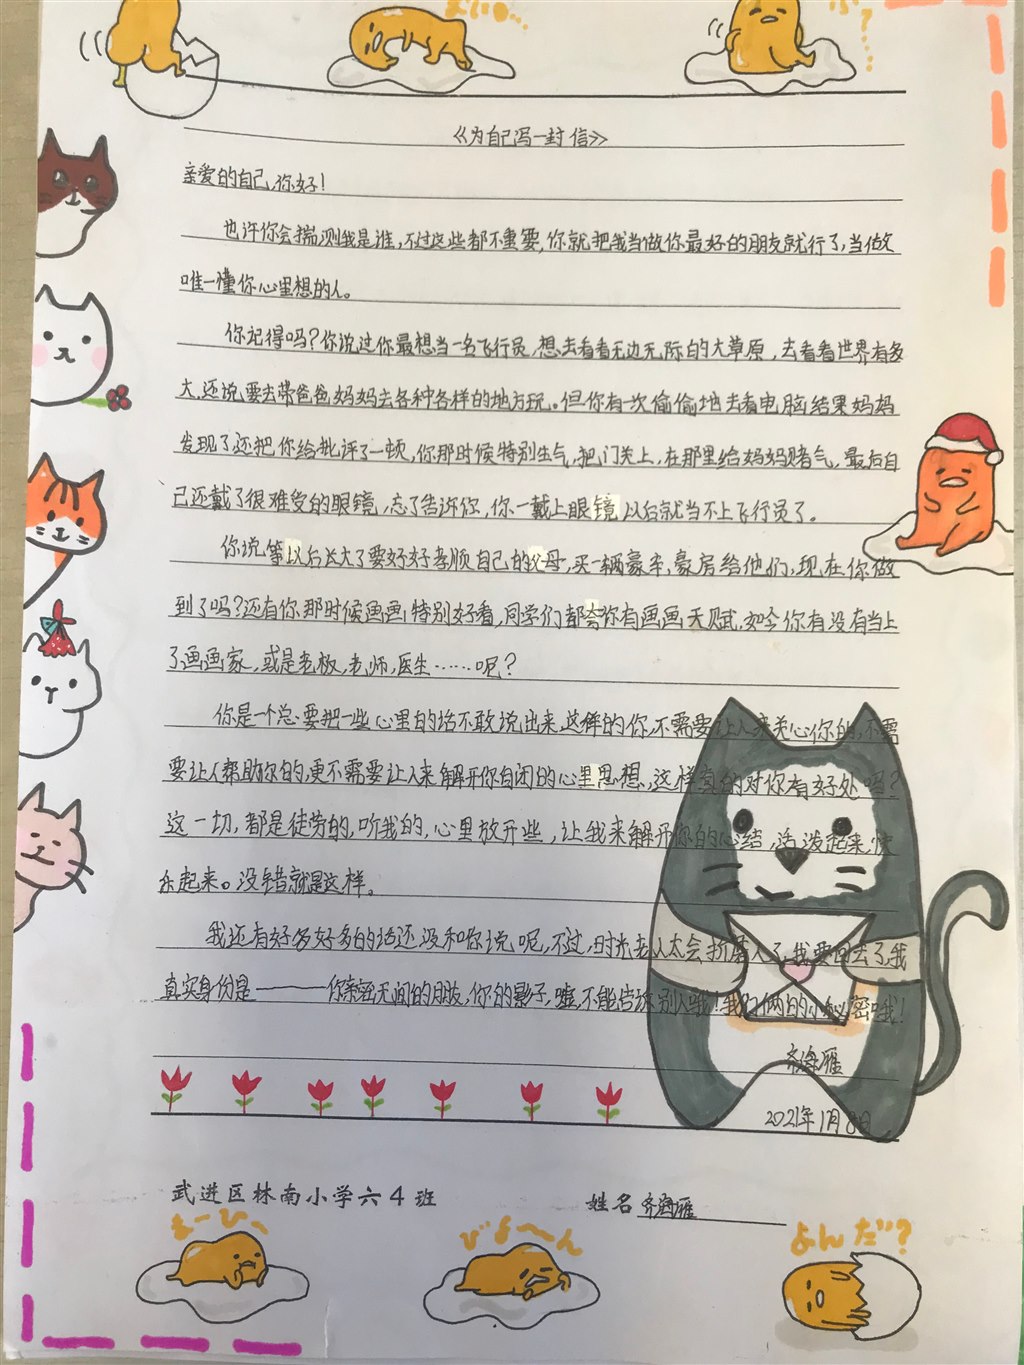 《为自己写一封信》
亲爱的自己,你好!
也许你会揣测我是谁,不过这些都不重要,你就把我当做你最好的朋友就行了,当做
唯一懂你心里想的人。
你记得吗?你说过你最想当一名飞行员,想去看看无边无际的大草原,去看看世界有多
大,还说要去带爸爸妈妈去各种各样的地方玩。但你有一次偷偷地去看电脑结果妈妈
发现了还把你给批评了一顿,你那时候特别生气,把门关上,在那里给妈妈赌气,最后自
己还戴了很难受的眼镜,忘了告诉你,你一戴上眼镜以后就当不上飞行员了。
你说等以后长大了要好好孝顺自己的父母,买一辆豪车,豪房给他们,现在你做
到了吗?还有你那时候画画特别好看,同学们都会你有画画天赋,如今你有没有当上
了画画家,或是老板,老师,医生……呢?
你是一个总要把一些心里的话不敢说出来,这样的你,不需要让人来关心你的,不需
要让人帮助你的,更不需要让人来解开你自闭的心里思想,这样真的对你有好处吗?
这一切,都是徒劳的,听我的,心里放开些,让我来解开你的心结,活泼起来,快
乐起来。没错就是这样。
我还有好多好多的话还没和你说呢,不过,时光老人太会折磨人了,我要回去了,我
真实身份是———你亲密无间的朋友,你的影子,嘘,不能告诉别人哦!我们俩的小秘密哦!
齐海雁
2021年1月8日
武进区林南小学六4班 姓名 齐海雁
まーひー
びよ〜ん
よんだ?